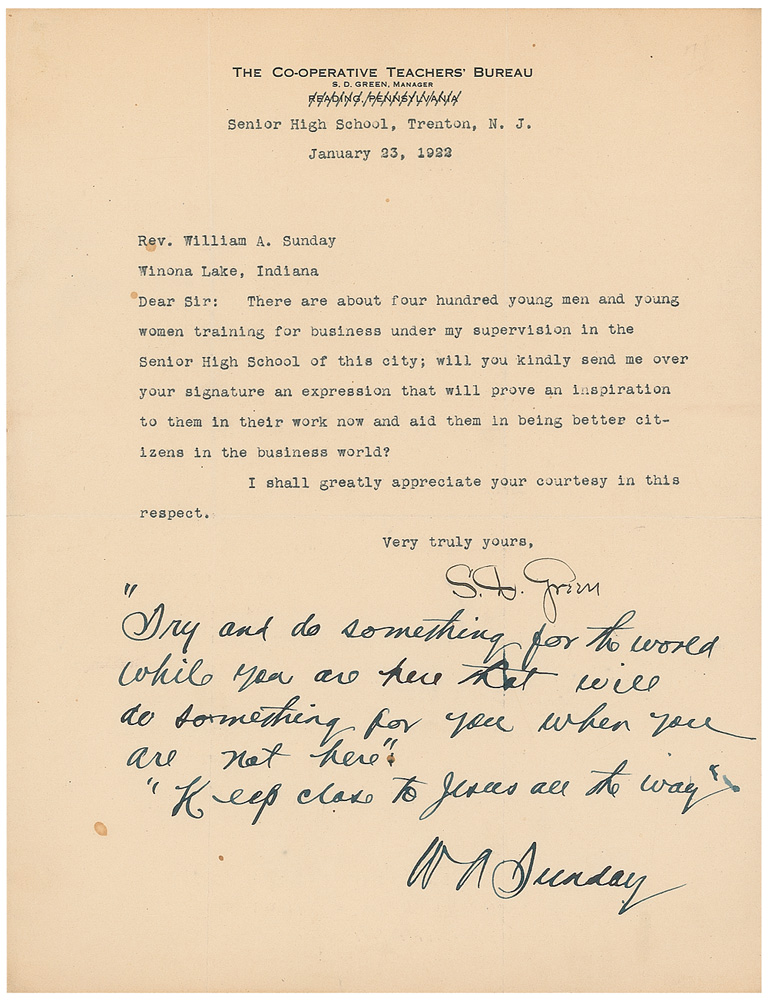 THE CO-OPERATIVE TEACHERS' BUREAU
S. D. GREEN, MANAGER
READING, PENNSYLVANIA
Senior High School, Trenton, N. J.
January 23, 1922
Rev. William A. Sunday
Winona Lake, Indiana
Dear Sir: There are about four hundred young men and young
women training for business under my supervision in the
Senior High School of this city; will you kindly send me over
your signature an expression that will prove an inspiration
to them in their work now and aid them in being better cit-
izens in the business world?
I shall greatly appreciate your courtesy in this
respect.
Very truly yours,
S. D. Green
"Try and do something for the world
while you are here that will
do something for you when you
are not here".
"Keep close to Jesus all the way"
W A Sunday